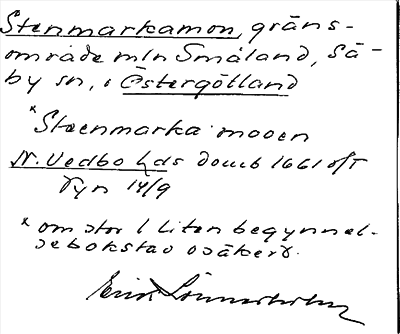 Stenmarkamon, gräns-
område mln Småland, Sä-
by sn, i Östergötland
x Steenmarka mooen
N. Vedbo hds domb 1661 oft
Tyn 14/9
x om stor l liten begynnel-
sebokstav osäkert.